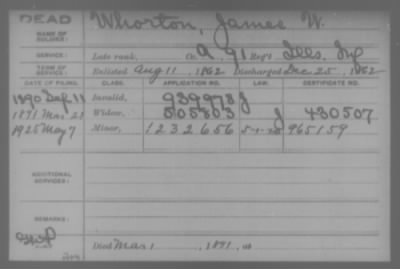 DEAD
Whorton, James W.
NAME OF SOLDIER:
SERVICE:
Late rank, Co. A, 91 Reg't Ills. Inf
TERM OF SERVICE:
Enlisted Aug 11, 1862 Discharged Dec 25, 1862
DATE OF FILING. CLASS. APPLICATION NO. LAW. CERTIFICATE NO.
1890 Sep 11 Invalid, 939978 J
1891 Mar 28 Widow, 505803 J 430507
1925 May 7 Minor, 1232656 965159
ADDITIONAL SERVICES:
REMARKS:
Died Mar 1, 1891,